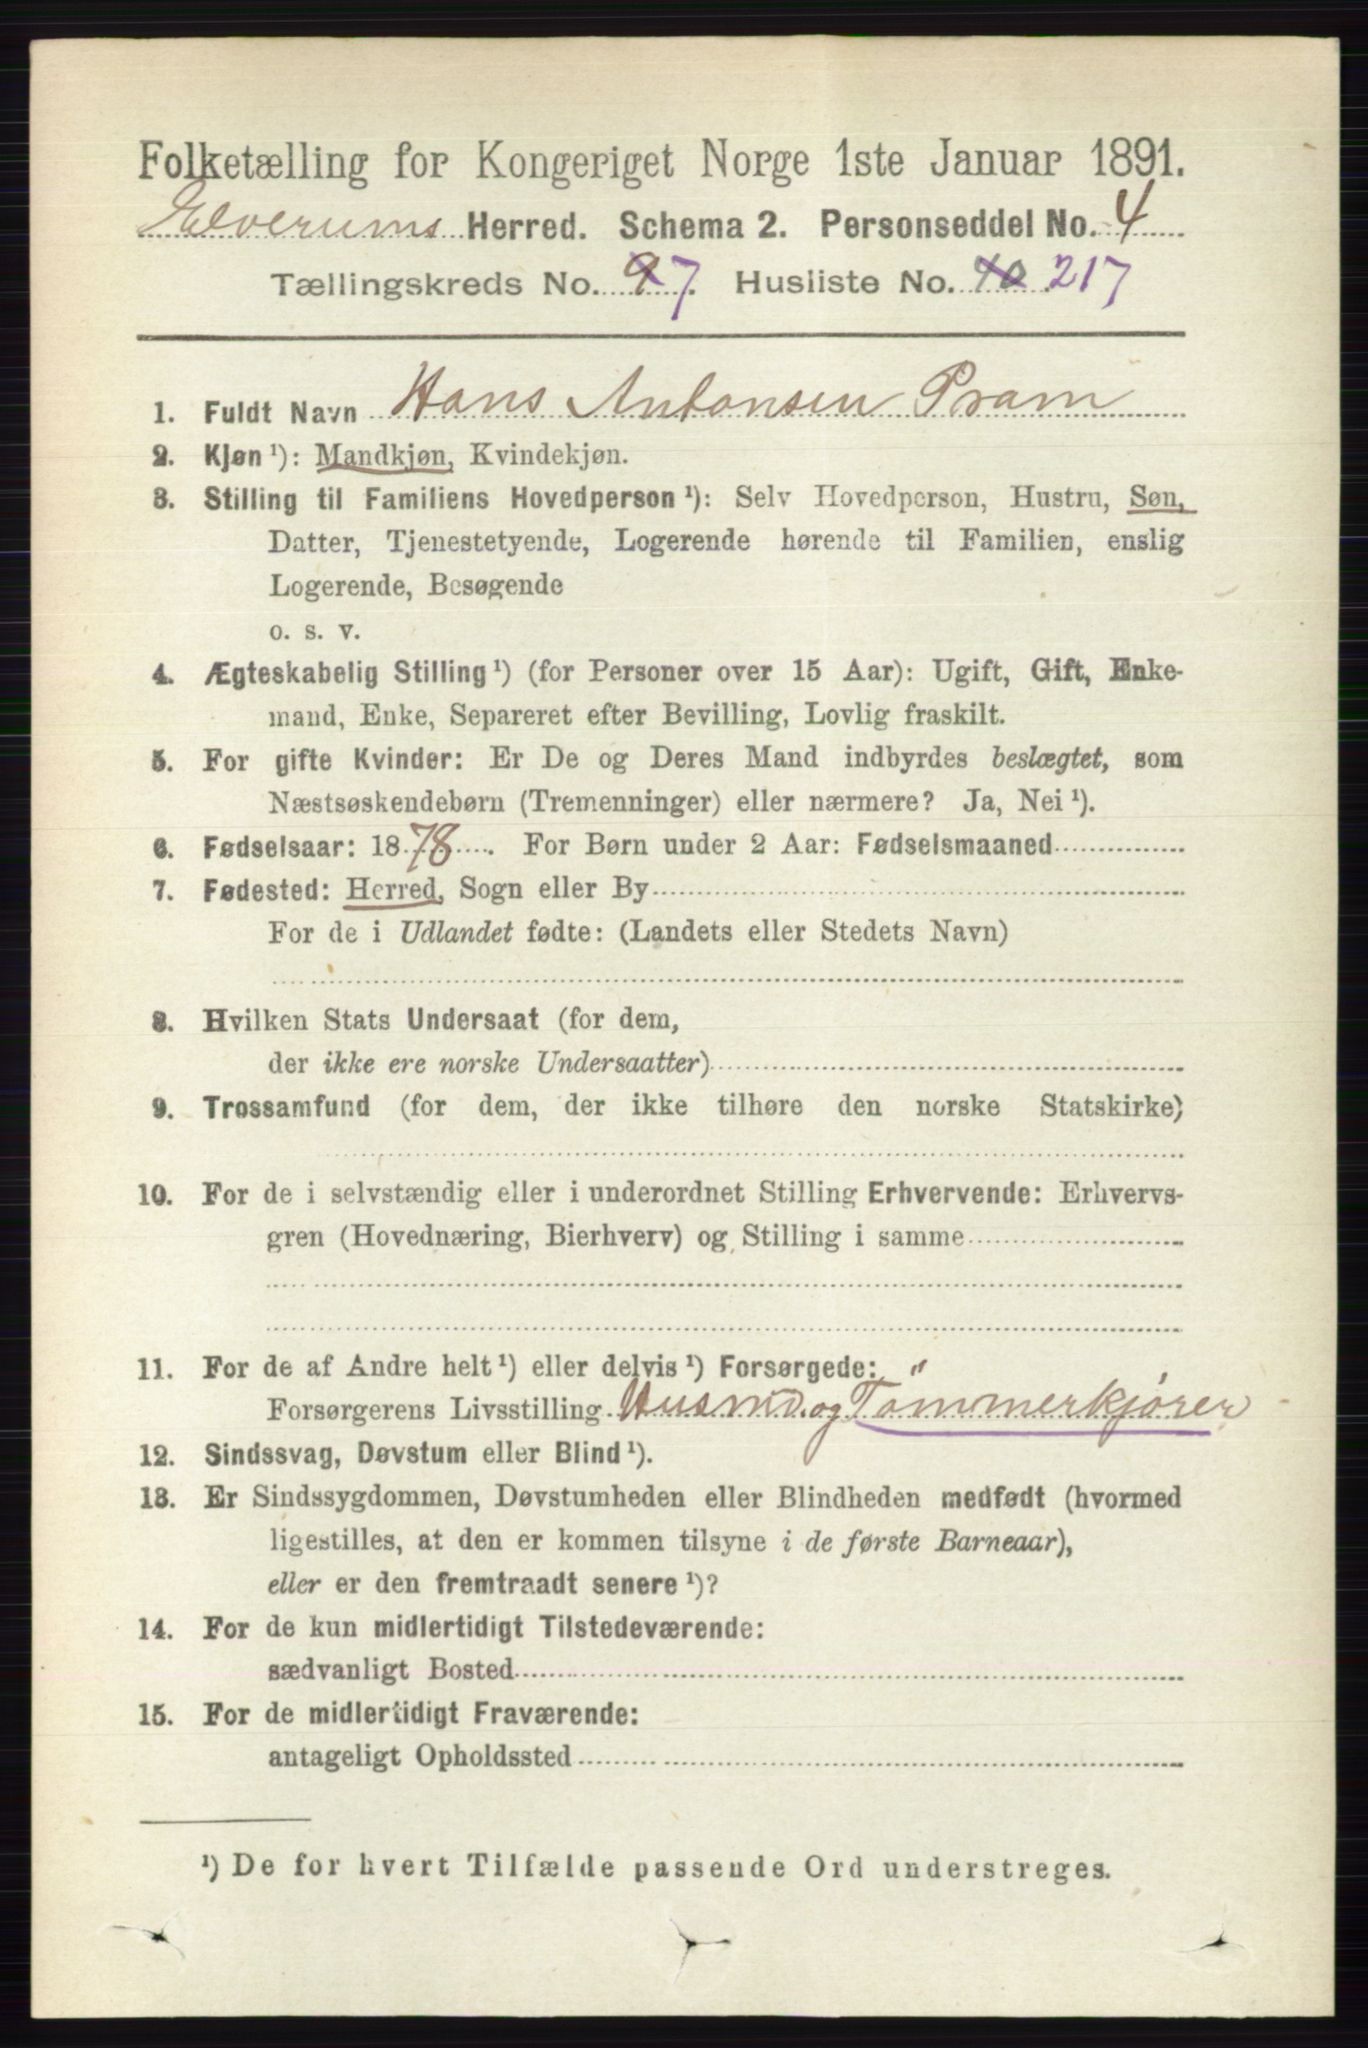 Folketælling for Kongeriget Norge 1ste Januar 1891.
Elverums Herred. Schema 2. Personseddel No. 4
Tællingskreds No. 9 7. Husliste No. 10 217
1. Fuldt Navn Hans Antonsen Pram
2. Kjøn ¹): Mandkjøn, Kvindekjøn.
3. Stilling til Familiens Hovedperson ¹): Selv Hovedperson, Hustru, Søn,
Datter, Tjenestetyende, Logerende hørende til Familien, enslig
Logerende, Besøgende
o. s. v.
4. Ægteskabelig Stilling ¹) (for Personer over 15 Aar): Ugift, Gift, Enke-
mand, Enke, Separeret efter Bevilling, Lovlig fraskilt.
5. For gifte Kvinder: Er De og Deres Mand indbyrdes beslægtet, som
Næstsøskendebørn (Tremenninger) eller nærmere? Ja, Nei ¹).
6. Fødselsaar: 1878. For Børn under 2 Aar: Fødselsmaaned
7. Fødested: Herred, Sogn eller By
For de i Udlandet fødte: (Landets eller Stedets Navn)
8. Hvilken Stats Undersaat (for dem,
der ikke ere norske Undersaatter)
9. Trossamfund (for dem, der ikke tilhøre den norske Statskirke)
10. For de i selvstændig eller i underordnet Stilling Erhvervende: Erhvervs-
gren (Hovednæring, Bierhverv) og Stilling i samme
11. For de af Andre helt ¹) eller delvis ¹) Forsørgede:
Forsørgerens Livsstilling Husmd. og Tømmerkjører
12. Sindssvag, Døvstum eller Blind ¹).
13. Er Sindssygdommen, Døvstumheden eller Blindheden medfødt (hvormed
ligestilles, at den er kommen tilsyne i de første Barneaar),
eller er den fremtraadt senere ¹)?
14. For de kun midlertidigt Tilstedeværende:
sædvanligt Bosted
15. For de midlertidigt Fraværende:
antageligt Opholdssted
¹) De for hvert Tilfælde passende Ord understreges.